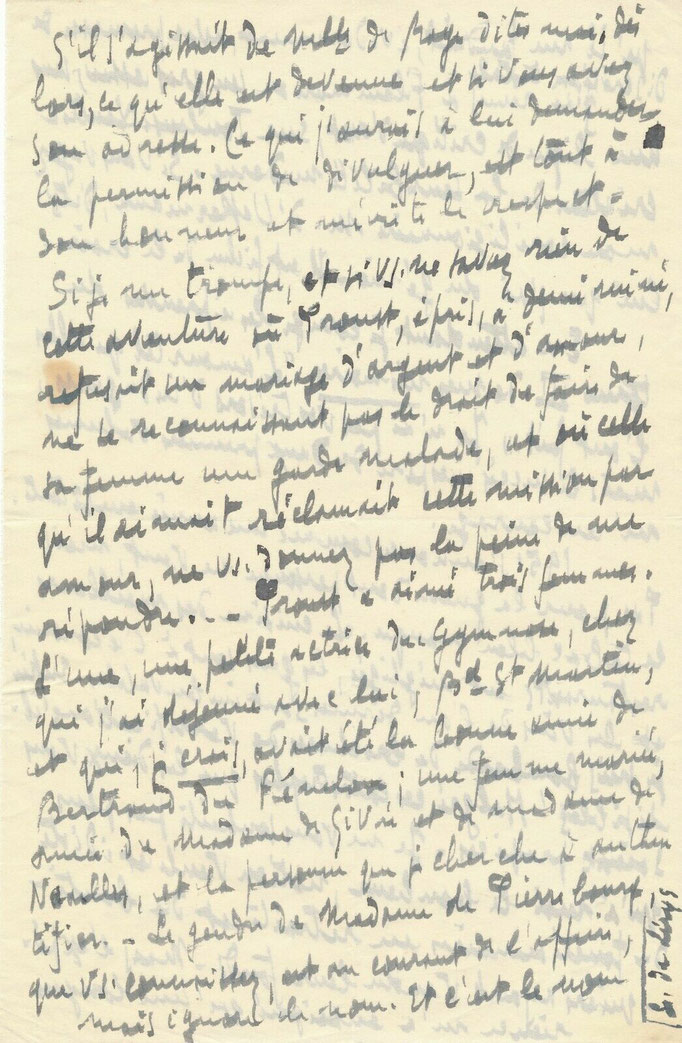 S'il s'agissait de Mlle de Page dites moi, dès
lors, ce qu'elle est devenue et si vous avez
son adresse. Ce que j'aurais à lui demander
la permission de divulguer, est tout à
son honneur et mérite le respect.
Si je me trompe, et si vs. ne savez rien de
cette aventure où Proust, épris, à demi ruiné,
refusait un mariage d'argent et d'amour,
ne se reconnaissant pas le droit de faire de
sa femme une garde malade, et où celle
qu'il aimait réclamait cette mission par
amour, ne vs. donnez pas la peine de me
répondre. - Proust a aimé trois femmes.
L'une, une petite actrice du Gymnase, chez
qui j'ai déjeuné avec lui, Bd St Martin,
et qui, je crois, avait été la bonne amie de
Bertrand de Fénelon; une femme mariée,
amie de Madame de Givré et de madame de
Noailles, et la personne que je cherche à authen
tifier. - Le gendre de Madame de Pierrebourg,
que vs. connaissez, est au courant de l'affaire,
mais ignore le nom. Et c'est le nom